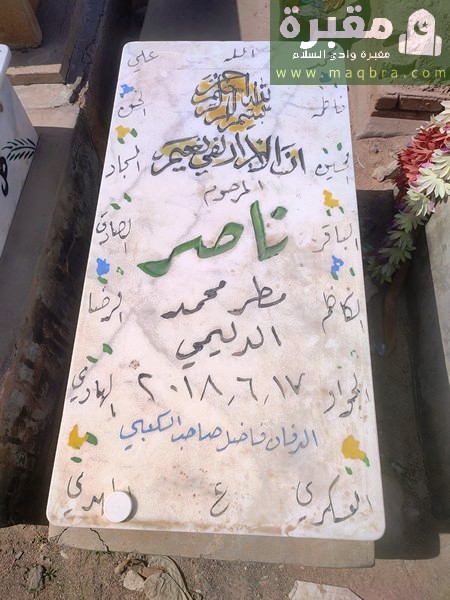 مقبرة
مقبرة وادي السلام
www.maqbra.com
الله
علي
بسم الله الرحمن الرحيم
فاطمة
الحسن
ان الابرار لفي نعيم
الحسين
السجاد
المرحوم
ناصر
الباقر
الصادق
مطر محمد
الكاظم
الرضا
الدليمي
الجواد
٢٠١٨.٦.١٧
الهادي
الدفان فاضل صاحب الكعبي
العسكري
ع
المهدي